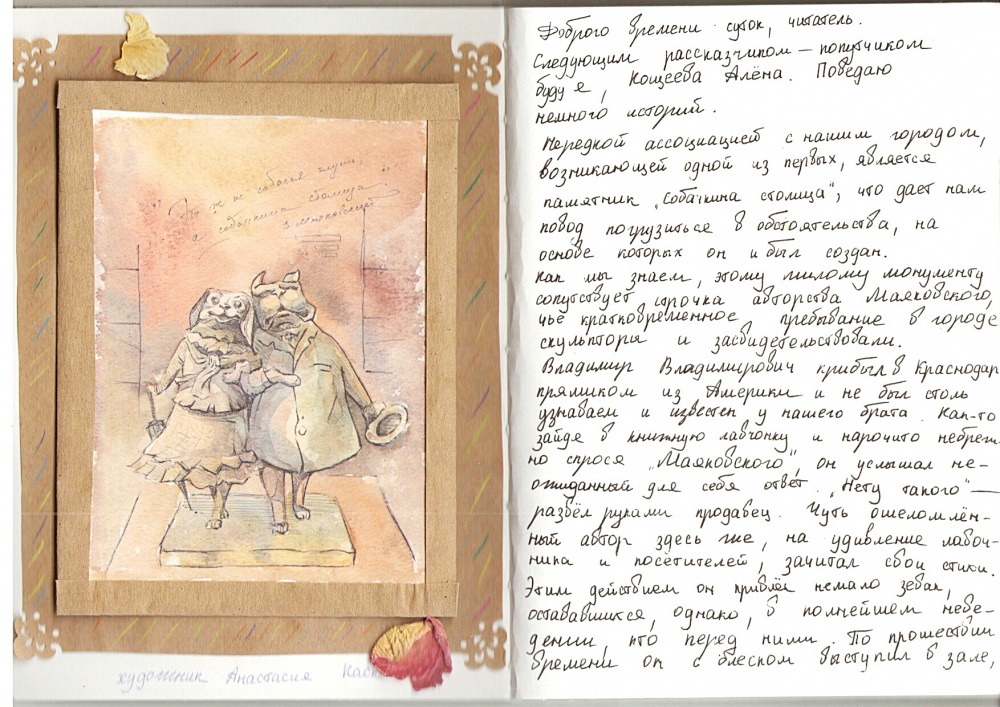 "Это ж не собачья глушь,
а собачкина столица"
в. маяковский
художник Анастасия
Доброго времени суток, читатель.
Следующим рассказчиком — попутчиком
буду я, Кощеева Алёна. Поведаю
немного историй.
Нередкой ассоциацией с нашим городом,
возникающей одной из первых, является
памятник „Собачкина столица", что дает нам
повод погрузиться в обстоятельства, на
основе которых он и был создан.
Как мы знаем, этому милому монументу
сопутствует строчка авторства Маяковского,
чье кратковременное пребывание в городе
скульптора и засвидетельствовали.
Владимир Владимирович прибыл в Краснодар
прямиком из Америки и не был столь
узнаваем и известен у нашего брата. Как-то
зайдя в книжную лавчонку и нарочито небреж-
но спрося „Маяковского", он услышал не-
ожиданный для себя ответ. „Нету такого" —
развёл руками продавец. Чуть ошеломлён-
ный автор здесь же, на удивление лавоч-
ника и посетителей, зачитал свои стихи.
Этим действием он привлёк немало зевак,
остававшихся, однако, в полнейшем неве-
дении, кто перед ними. По прошествии
времени он с блеском выступил в зале,